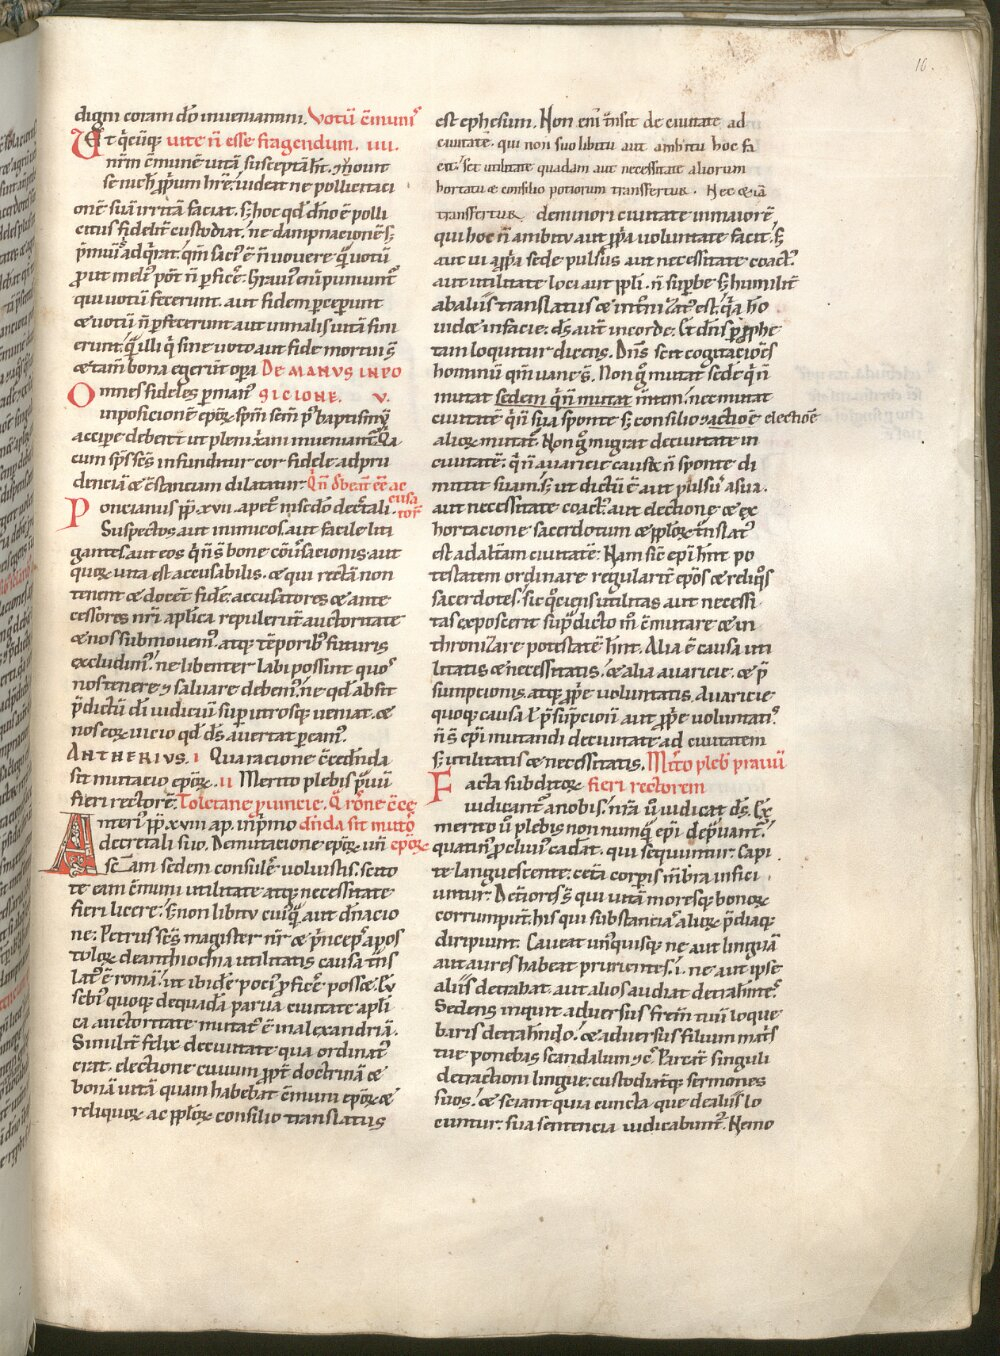 16.
digni coram dō inueniamini. Votū c̄munis
Ut q̄cūq; uite n̄ esse fragendum. IIII.
nr̄m c̄munē uitā susceptā hn̄t. ⁊ uouit
se nich̄ ꝓpriū hr̄e: uideat ne pollicitaci
onē suā irritā faciat. s; hoc qd̄ dn̄o ē polli
citus fidelit̄ custodiat. ne dampnacionē s;
p̄miū adq̄rat. qm̄ saci᷒ ē n̄ uouere q̄ uotū
ꝓut meli᷒ pōt n̄ ꝑficē. Graui᷒ enī puniunt᷒
qui uotū fecerunt. aut fidem perceperunt
⁊ uotū n̄ ꝑfecerunt aut in malis uitā fini
erunt. q̄ illi q̄ sine uoto aut fide mortui s̄t
⁊ tam̄ bona egerūt opa. DE MANUS INPO
Omnes fideles ꝑ man᷒ SICIONE. V.
inposicionē ep̄oꝝ sp̄m sc̄m p᷒ baptismū
accipe debent ut pleni xāni inueniant᷒. Q̄a
cum sp̄s sc̄s infunditur cor fidele ad pru
denciā ⁊ c̄stanciam dilatatur. Qui n̄ debeāt eē accusa
Poncianus pp̄. xvii. ap̄ et᷒ in sc̄do decretali. tor᷒
Suspectos aut inimicos. aut facile liti
gantes. aut eos q̄ n̄ s̄ bone c̄uersacionis. aut
quoꝝ uita est accusabilis. ⁊ qui rectā non
tenent ⁊ docent fidē: accusatores ⁊ ante
cessores nr̄i aplica repulerūt auctoritate
⁊ nos submouem᷒. atq; tēporib᷒ futuris
excludim᷒. ne libenter labi possint quos
nos tenere ⁊ saluare debem᷒. ne qd̄ absit
p̄dictū dī iudiciū sup utrosq; ueniat. ⁊
nos eoꝝ uicio qd̄ ds̄ auertat peream᷒.
ANTHERIUS. I Qua racione c̄cedenda
sit mutacio ep̄oꝝ. II Merito plebis p̄uū
fieri rectorē. Toletane ꝓuincie. Q̄ rōne c̄ce
Anteri᷒ pp̄. xviii. ap. in p̄mo dn̄da sit mutō
decretali suo. De mutacione ep̄oꝝ un̄ ep̄oꝝ
sc̄am sedem consulē uoluistis. scito
te eam c̄muni utilitate atq; necessitate
fieri licere. s; non libitu cui᷒q̄ aut dn̄acio
ne. Petrus sc̄s magister nr̄ ⁊ p̄nceps apos
toloꝝ de anthiochia utilitatis causa trn̄s
lat᷒ ē romā. ut ibidē poci᷒ ꝓficē posset. Eu
sebi᷒ quoq; de quadā parua ciuitate apli
ca auctoritate mutat᷒ ē in alexandriā.
Similit̄ felix de ciuitate qua ordinat᷒
erat. electione ciuium ꝓpt̄ doctrinā ⁊
bonā uitā quam habebat c̄muni ep̄oꝝ ⁊
reliquoꝝ ac pploꝝ consilio translatus
est ephesum. Non eni᷒ trn̄sit de ciuitate ad
ciuitatē. qui non suo libitu aut ambitu hoc fa
cit: set utilitate quadam aut necessitate aliorum
hortatu ⁊ consilio potiorum transfertur. Nec ⁊iā
transfertur de minori ciuitate in maiorē
qui hoc n̄ ambitu aut ꝓpa uoluntate facit. s;
aut ui a ꝓpa sede pulsus aut necessitate coact᷒
aut utilitate loci aut ppli. n̄ supbe s; humilit̄
ab aliis translatus ⁊ int̄nizat᷒ est. q̄a ho
uidet in facie. ds̄ aut̄ in corde. Et dn̄s ꝑ ꝓphe
tam loquitur dicens. Dn̄s scit cogitaciōes
hominū qm̄ uane s̄. Non ḡ mutat sedē q̄ n̄
mutat sedem q̄ n̄ mutat mentem. nec mutat
ciuitatē q̄ n̄ sua sponte s; consilio ⁊ actiōe electiōe
alioꝝ mutat᷒. Non ḡ migrat de ciuitate in
ciuitatē. q̄ n̄ auaricie causa. n̄ sponte di
mittit suam. s; ut dictū ē aut pulsus a sua.
aut necessitate coact᷒. aut electione ⁊ ex
hortacione sacerdotum ⁊ pploꝝ trn̄slat᷒
est ad altam ciuitatē. Nam sic̄ ep̄i hn̄t po
testatem ordinare regularit̄ ep̄os ⁊ reliq᷒s
sacerdotes. sic q᷒ciens utilitas aut necessi
tas exposcerit sup̄dicto m̄ ⁊ mutare ⁊ in
thronizare potestatē hn̄t. Alia ē causa uti
litatis ⁊ necessitatis. ⁊ alia auaricie. ⁊ p̄
sumpcionis. atq; ꝓpe uoluntatis. Auaricie
quoq; causa ł p̄sūpcioni aut ꝓpe uoluntati᷒
n̄ s̄ ep̄i mutandi de ciuitate ad ciuitatem
s; utilitatis ⁊ necessitatis. Mito pleb᷒ prauū
Facta subditoꝝ fieri rectorem
iudicant᷒ a nobis. nr̄a ū iudicat ds̄. Ex
merito ū plebis non nunq̄ ep̄i deprauant᷒.
quatin᷒ ꝓcliui᷒ cadat. qui sequuntur. Capi
te languescente. cet̄a corporis mēbra infici
untur. Deteriores s̄ qui uitā moresq; bonoꝝ
corrumpūt. his qui substancias alioꝝ p̄diaq;
diripiunt. Caueat un᷒quisq; ne aut linguā
aut aures habeat prurientes. .i. ne aut ipse
aliis detrahat. aut alios audiat detrahentes.
Sedens inquit aduersus fratrem tuū loque
baris detrahendo. ⁊ aduersus filium matris
tue ponebas scandalum ⁊ c̄. Parcat̄ singuli
detractioni lingue. custodiatq; sermones
suos. ⁊ sciant quia cuncta que de aliis lo
cuntur. sua sentencia iudicabunt᷒. Nemo